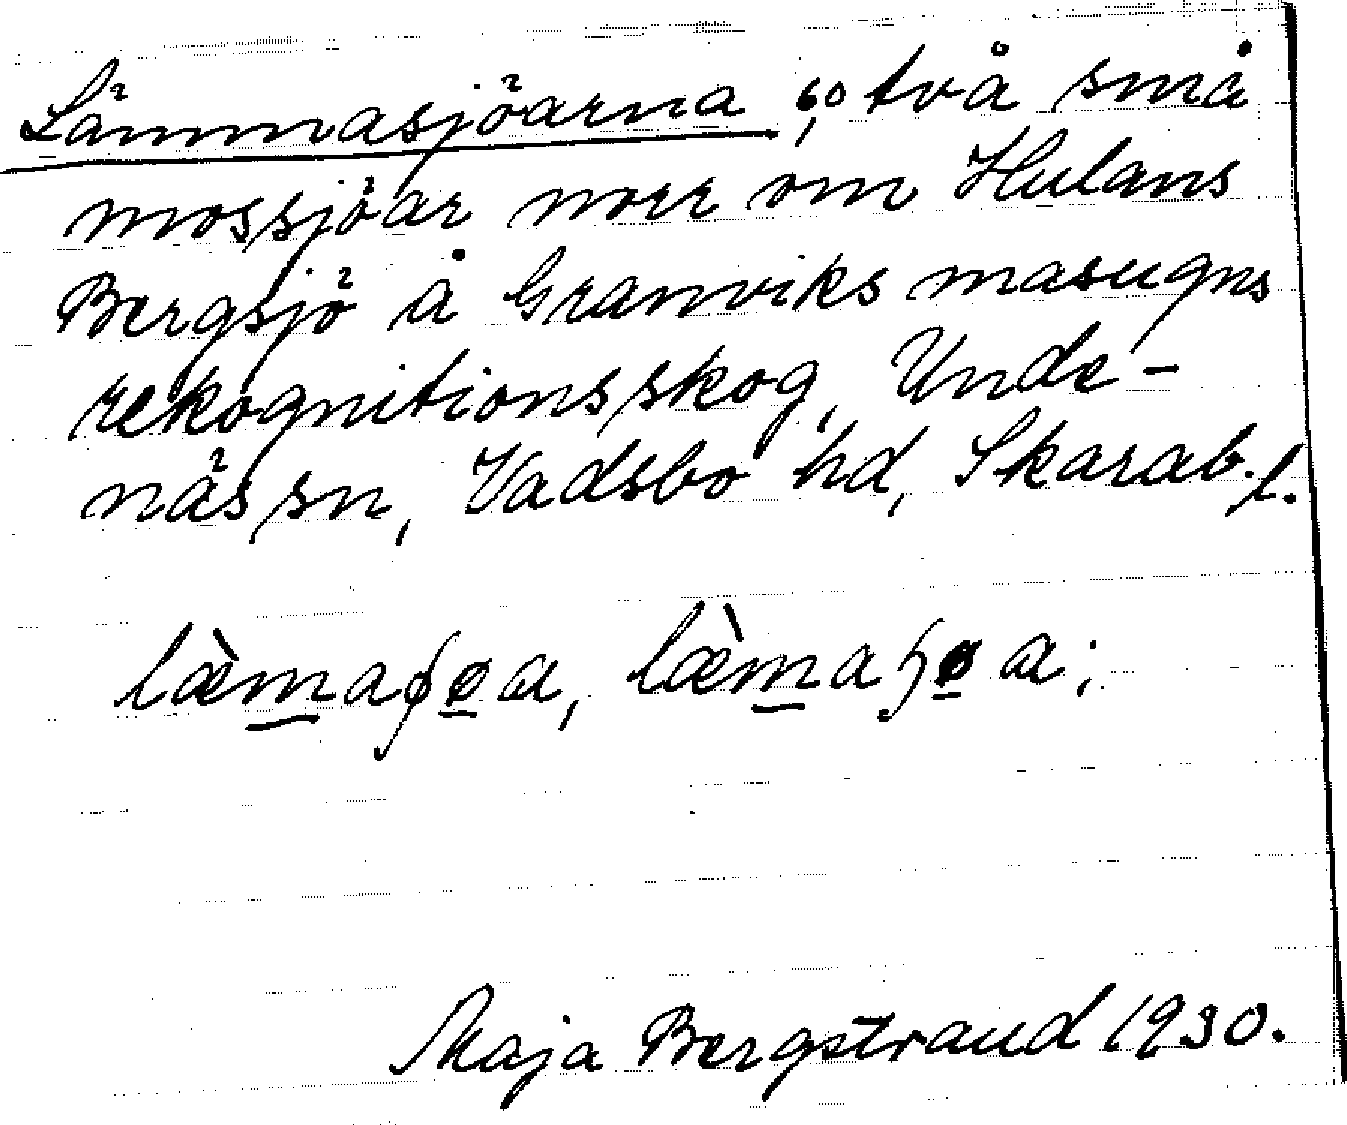 Lämmasjöarna, 60 två små
mossjöar norr om Hulans
Bergsjö å Granviks masugns
rekognitionsskog, Unde-
näs sn, Vadsbo hd, Skarab. l.
Maja Bergstrand 1930.